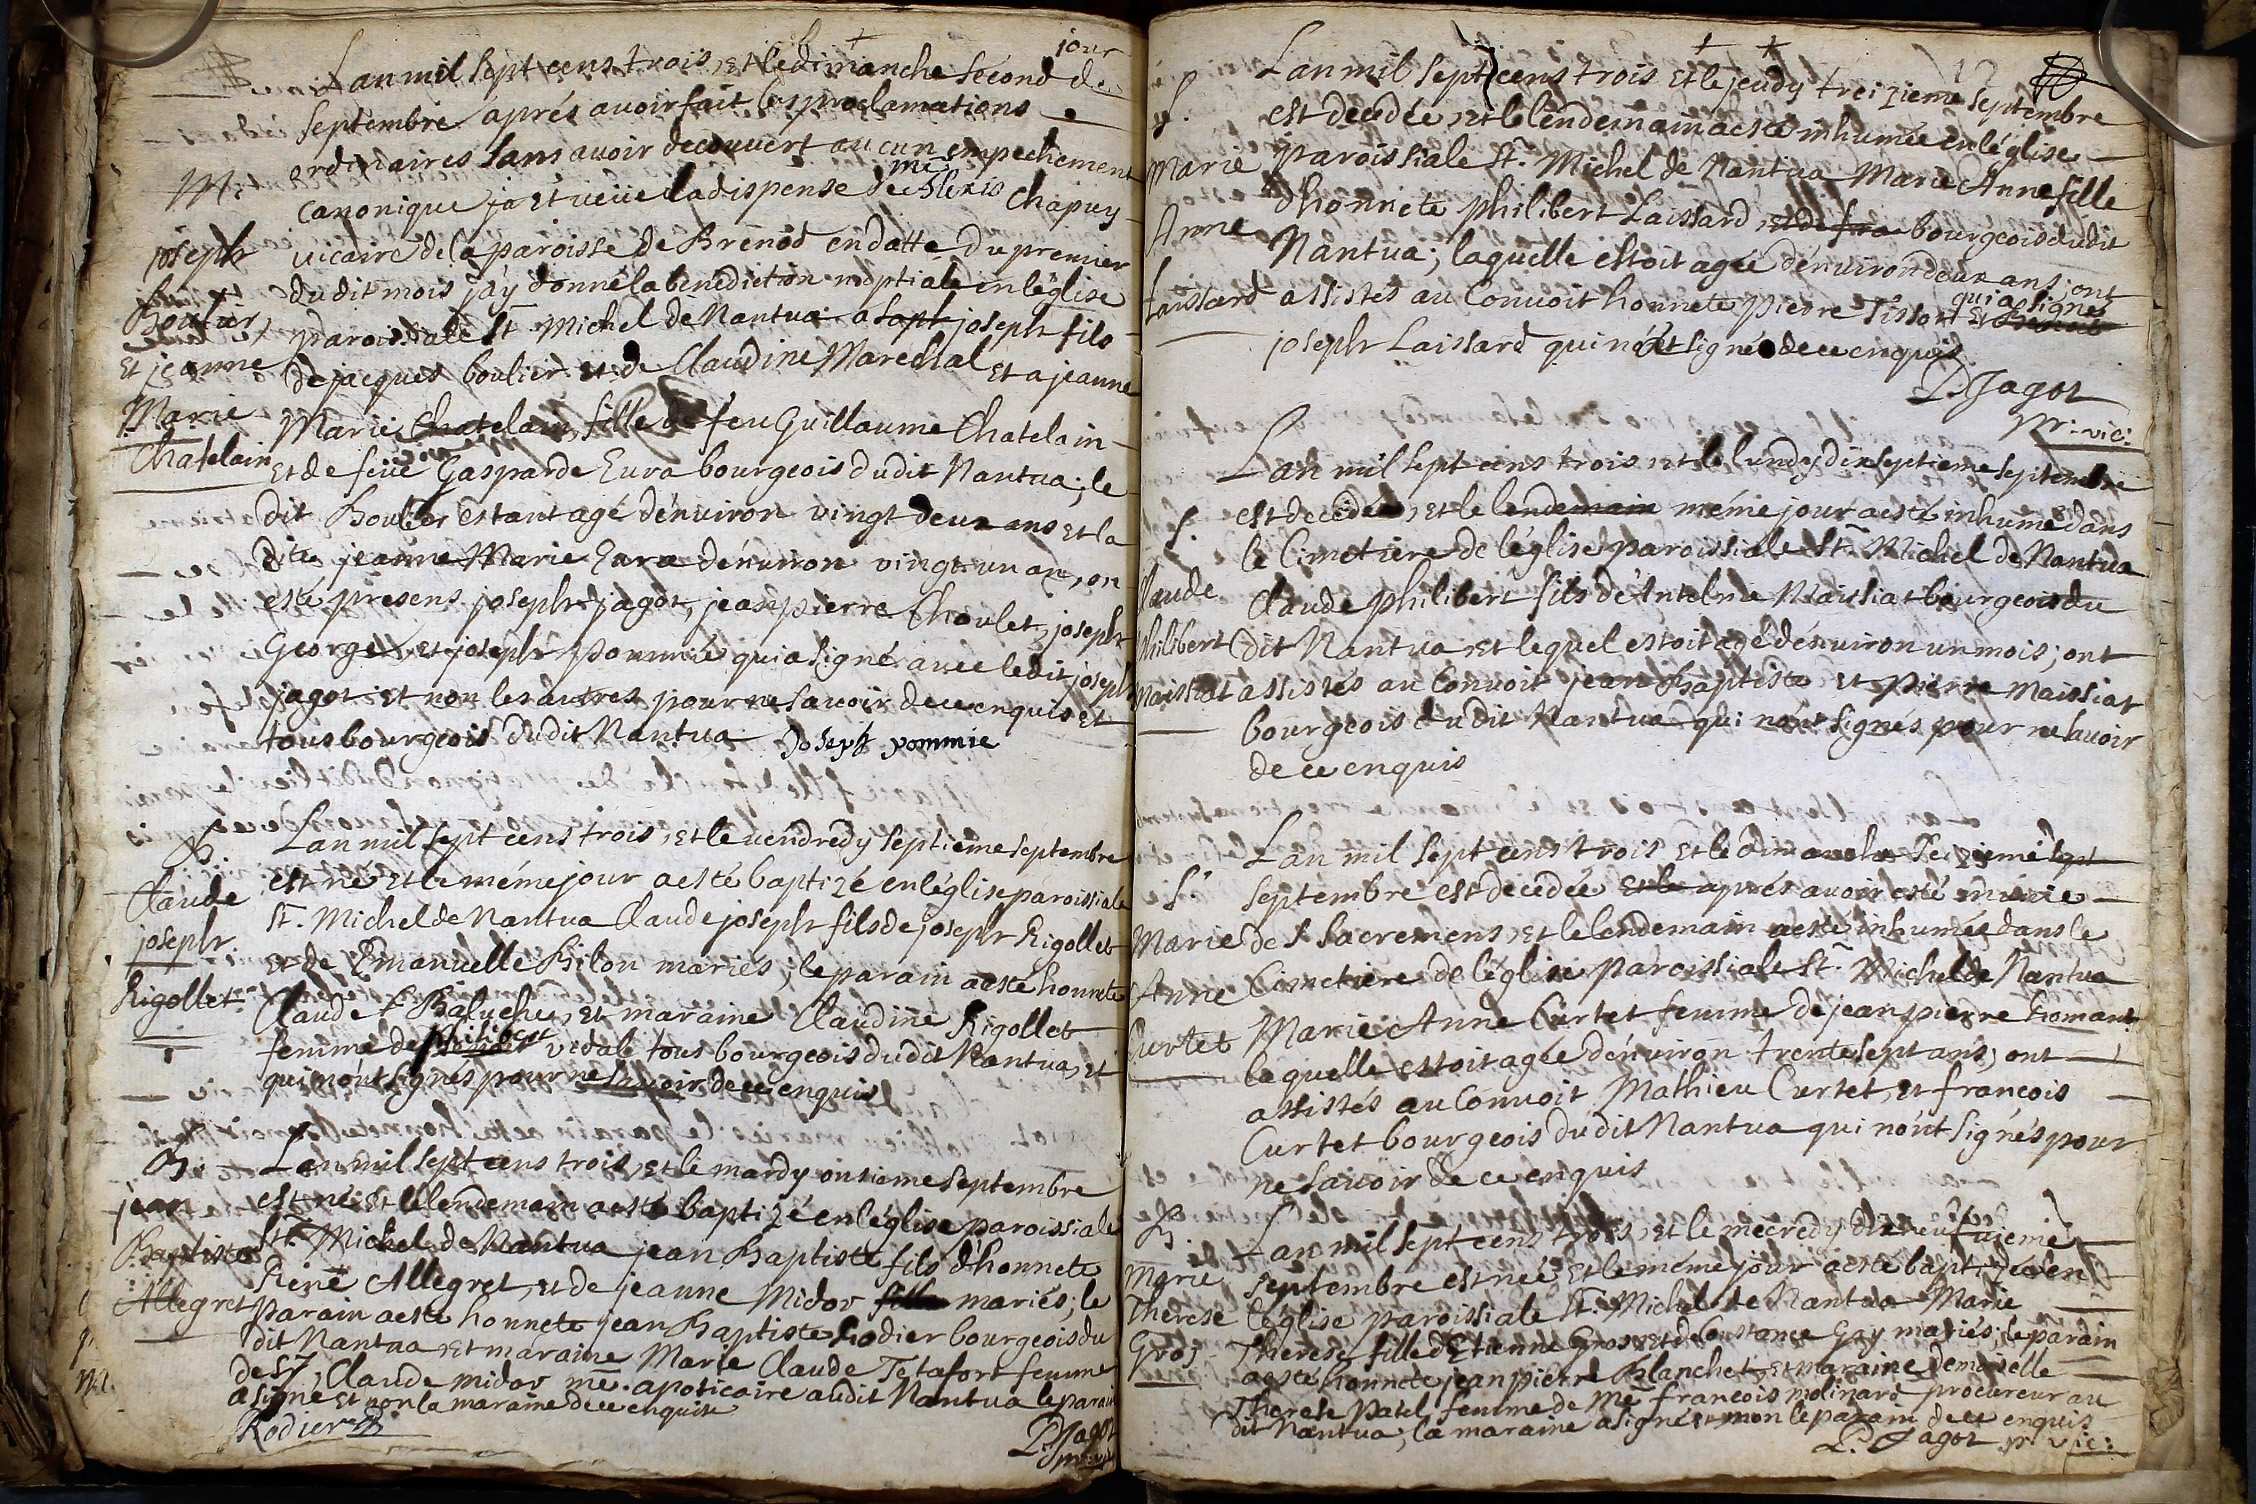 jour
Lan mil sept cens trois, et le dimanche second de
septembre aprés avoir fait les proclamations
ordinaires sans avoir decouvert aucun empechement
canonique et veüe la dispense de me Alexis Chapuy
vicaire de la paroisse de Brenod en datte du premier
dudit mois j'ay donné la benediction nuptiale en l'église
paroissiale St. Michel de Nantua a joseph fils
de jacques boulier et de Claudine Marechal et a jeanne
Marie Chatelain, fille de feu Guillaume Chatelain
et de feüe Gasparde Eura bourgeois dudit Nantua; le
dit Boulier estant agé d'énviron vingt deux ans et la
dite jeanne Marie Eura d'énviron vingt un an, on
esté presens joseph jagot, jean pierre Choulet, joseph
George et joseph pommié qui a signé avec ledit joseph
jagot et non les autres pour ne savoir de ce enquis et
tous bourgeois dudit Nantua Joseph pommie
M.
joseph
Boulier
Et jeanne
Marie
Chatelain
Lan mil sept cens trois, et le vendredy septiéme septembre
est né et le méme jour a esté baptizé en l'église paroissiale
St. Michel de Nantua Claude joseph fils de joseph Rigollet
et de Emanuelle Bilon mariés; le parain a esté honnete
Claude Baluche, et maraine Claudine Rigollet
femme de philibert vidal tous bourgeois dudit Nantua, et
qui n'ont signés pour ne savoir de ce enquis
B.
Claude
joseph.
Rigollet
Lan mil sept cens trois, et le mardy onziéme septembre
est né et le lendemain a esté baptizé en l'église paroissiale
St. Michel de Nantua jean Baptiste fils d'honnete
René Allegret, et de jeanne Midor mariés; le
parain a esté honnete jean Baptiste Rodier bourgeois du
dit Nantua et maraine Marie Claude Tetafort femme
de Sr. Claude midor me. apoticaire audit Nantua le parain
a signé et non la maraine de ce enquise
Rodier
P. Jagot
B.
jean
Baptiste
Allegret
Lan mil sept cens trois et le jeudy treizieme septembre
est decedée, et le lendemain a esté inhumée en l'église
paroissiale St. Michel de Nantua Marie Anne fille
d'honnete philibert Laissard, et de bourgeois dudit
Nantua; laquelle estoit agée d'énviron deux ans; ont
assistés au Convoit honnete pierre Tissot qui a signé et
joseph Laissard qui n'a signé de ce enquis
P. Jagot
pr: vic:
S.
Marie
Anne
Laissard
Lan mil sept cens trois, et le lundy dixseptieme septembre
est decedé, et le lendemain méme jour a esté inhumé dans
le Cimetiere de l'église paroissiale St. Michel de Nantua
Claude philibert fils d'Antelme Maissiat bourgeois du
dit Nantua et lequel estoit agé d'énviron un mois; ont
assistés au Convoit jean Baptiste et pierre Maissiat
bourgeois dudit Nantua qui n'ont signés pour ne savoir
de ce enquis
S.
Claude
philibert
Maissiat
Lan mil sept cens trois et le dimanche seizieme sept
septembre est decedée et le aprés avoir esté munie
de S Sacremens, et le lendemain a esté inhumée dans le
Cimetiere de l'église paroissiale St. Michel de Nantua
Marie Anne Curtet femme de jean pierre Romant
laquelle estoit agée d'énviron trente sept ans; ont
assistés au Convoit Mathieu Curtet, et francois
Curtet bourgeois dudit Nantua qui n'ont signés pour
ne savoir de ce enquis
S.
Marie
Anne
Curtet
Lan mil sept cens trois, et le mecredy dixneufvieme
septembre est née et le méme jour a esté baptizée en
l'église paroissiale St. Michel de Nantua Marie
Therese fille d'Etienne Gros et de Constance Gay mariés; le parain
a esté honnete jean pierre Blanchet, et maraine demoiselle
Therese Patel femme de Me francois molinard procureur au
dit Nantua, la maraine a signé et non le parain de ce enquis
P. Jagot pr. vic:
B.
Marie
Therese
Gros